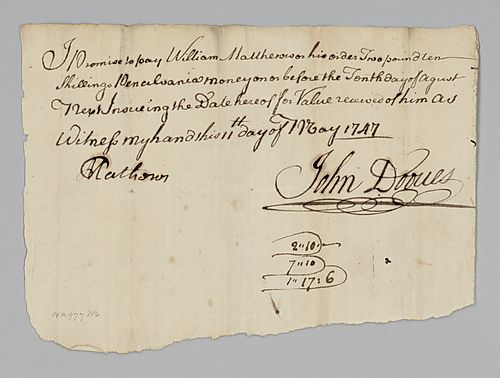 I Promise to pay William Matthews or his order Two pound ten
Shillings Pencilvania money on or before the Tenth day of Agust
Next Insueing the Date hereof for Value receved of him as
Witness my hand this 11th day of May 1747
John
2" 10"
7" 10
1" 17" 6